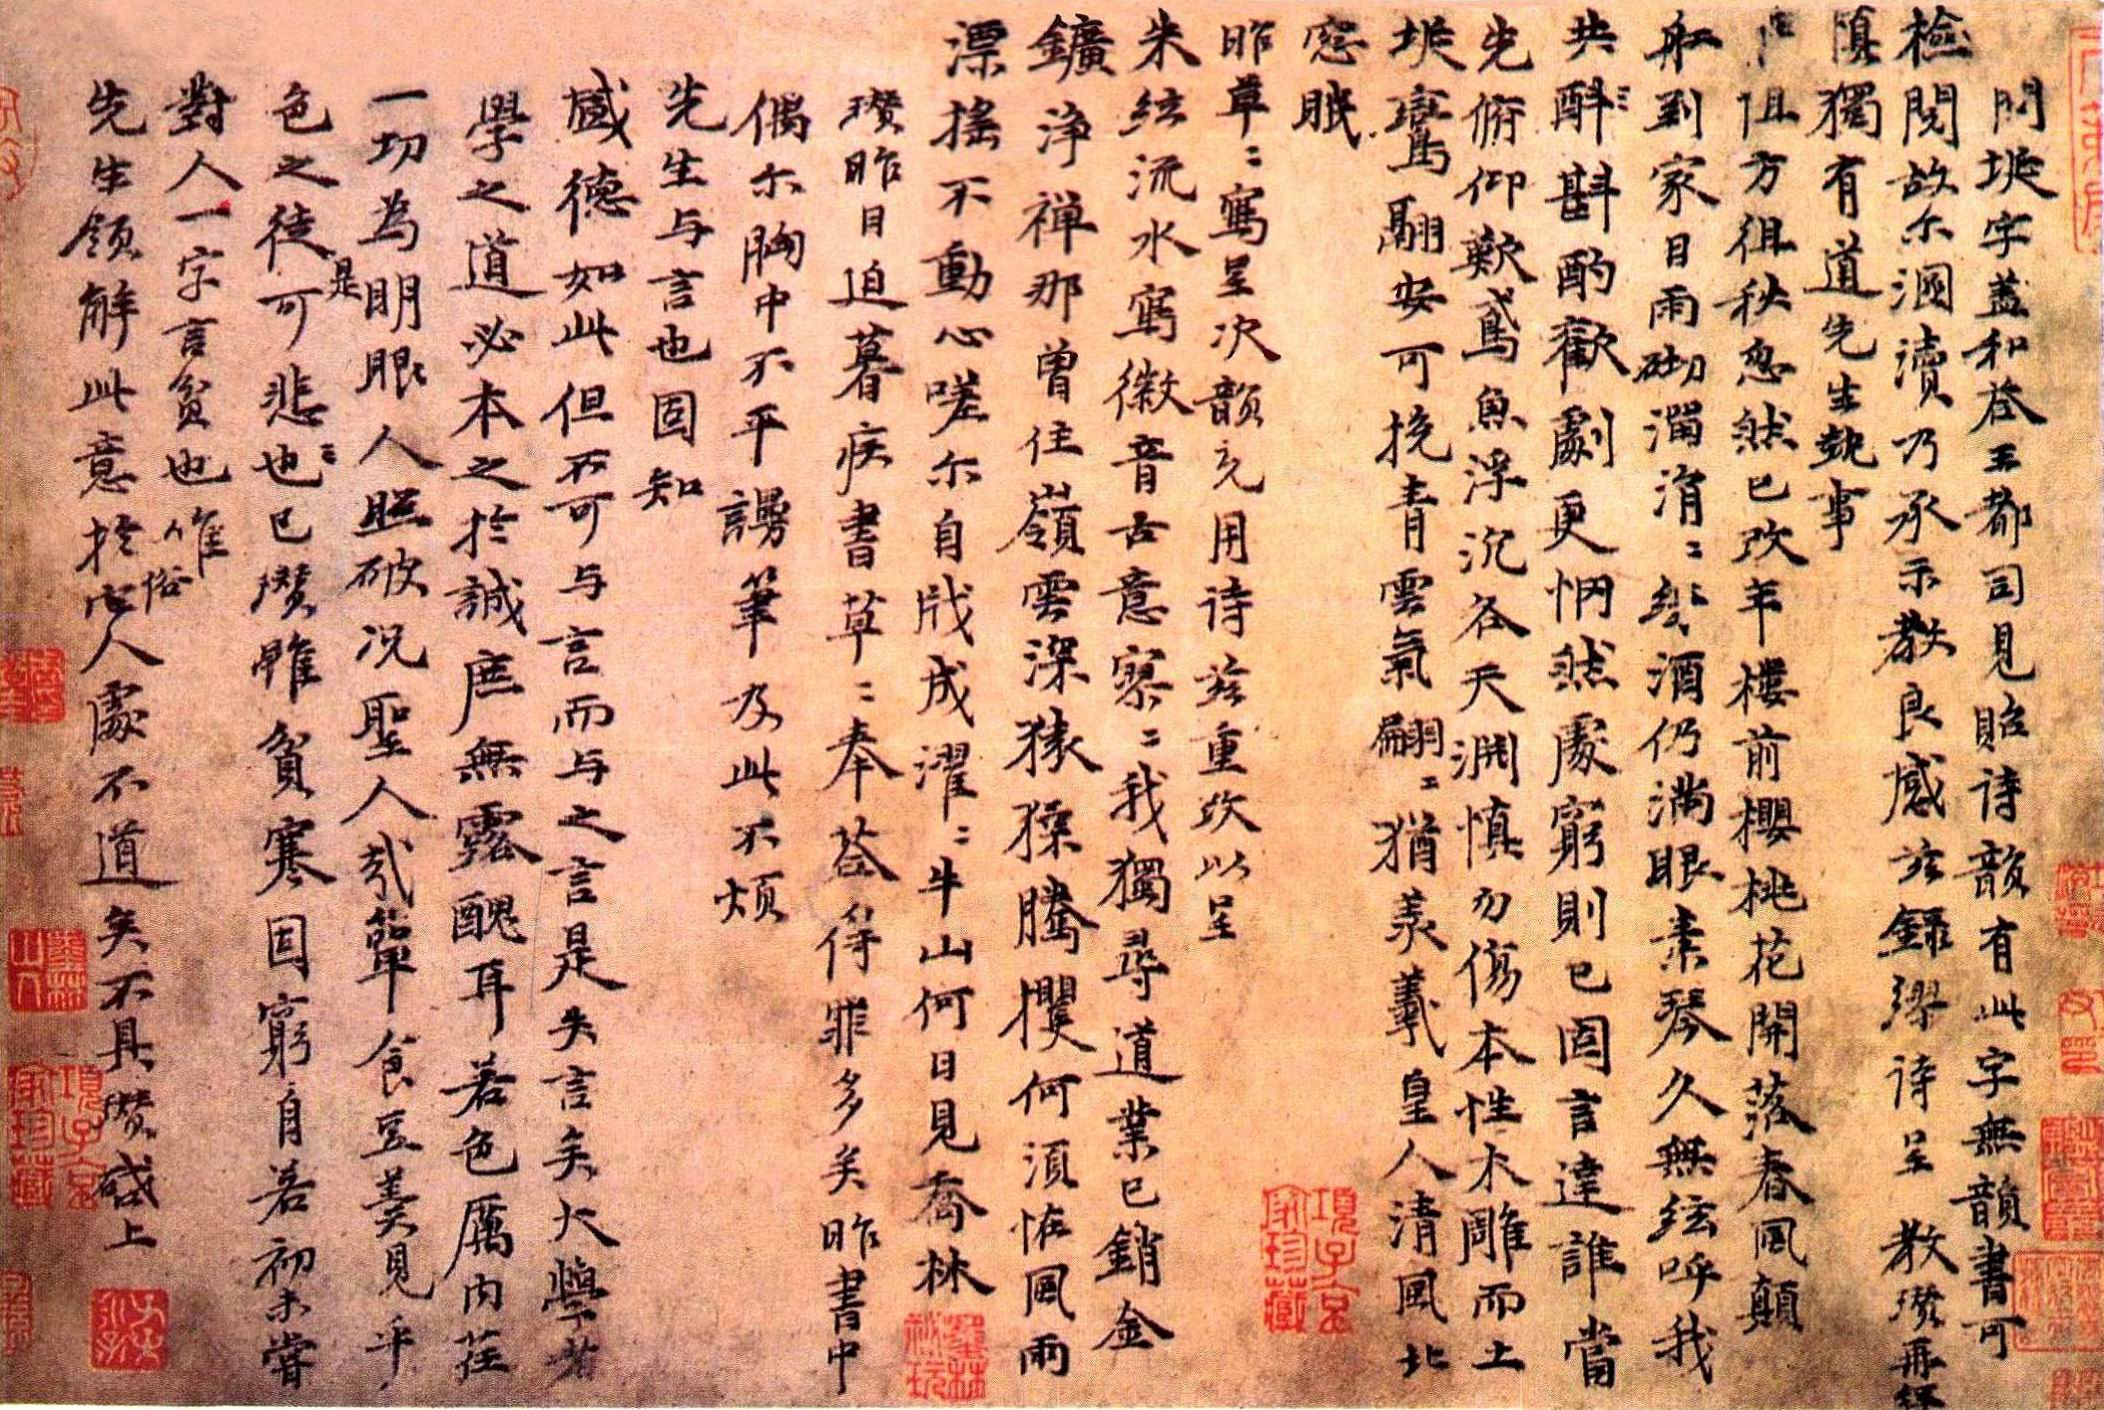 問埖字蓋和答王都司見貽诗韻有此字無韻書可
檢閱故尔溷瀆乃承示教良感兹錄謬诗呈教瓚再經
慎獨有道先生執事
阻方徂秋忽然已改年樓前櫻桃花開落春風顛
舡到家日雨砌潤涓〻釃酒仍滿眼素琴久無絃呼我
共酣〻斟酌歡劇更惘然處窮則已固言達誰當
先俯仰歎鳶魚浮沉各天渊慎勿傷本性木雕而土
埏鸞翮安可挽青雲氣翩〻猶羡羲皇人清風北
窓眠
昨草〻寫呈次韻元用诗兹重改以呈
朱絃流水寫徽音古意寥〻我獨尋道業已銷金
鑛净禪那曾住嶺雲深猿猱騰攫何須怪風雨
漂搖不動心嗟尔自戕成濯〻牛山何日見喬林
瓚昨日迫暮疾書草〻奉荅得罪多矣昨書中
偶尔胸中不平謾筆及此不煩
先生与言也固知
感德如此但不可与言而与之言是失言矣大學者
學之道必本之於誠庶無露醜耳若色厲內荏
一切為是明眼人照破况聖人哉簞食豆羹見乎
色之徒可悲也〻已瓚雖貧寒固窮自若初未嘗
對人一字言貧也唯
先生領解此意於俗人處不道矣不具瓚啟上